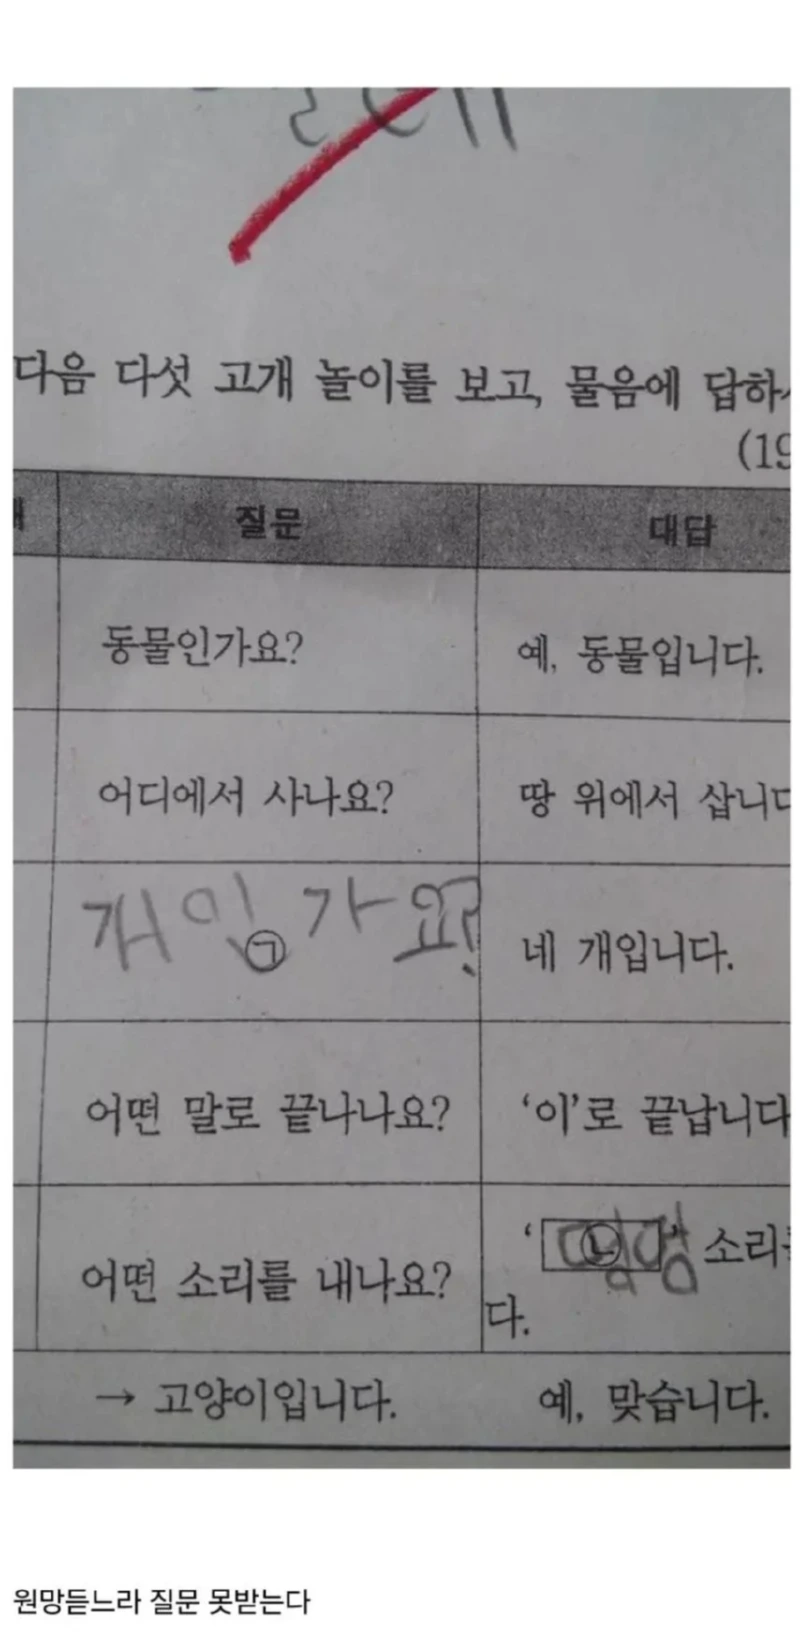 다음 다섯 고개 놀이를 보고, 물음에 답하
(19
질문 대답
동물인가요? 예, 동물입니다.
어디에서 사나요? 땅 위에서 삽니다
개인가요? ㉠ 네 개입니다.
어떤 말로 끝나나요? ‘이’로 끝납니다
어떤 소리를 내나요? ‘ ㉡ ’ 소리를
다.
→ 고양이입니다. 예, 맞습니다.
원망듣느라 질문 못받는다